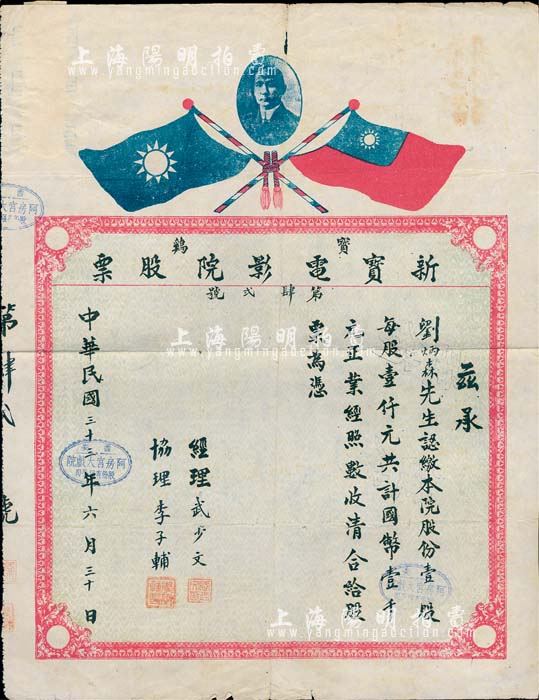 上海陽明拍賣
www.yangmingauction.com
寶鷄
新寶電影院股票
第肆弍號
茲承
劉炳森先生認繳本院股份壹股
每股壹仟元共計國幣壹千
元正業經照數收清合給股
票為憑
經理武少文
協理李子輔
中華民國三十三年六月三十日
第肆弍號
阿房宮大戲院
上海陽明拍賣
www.yangmingauction.com
上海陽明拍賣
www.yangmingauction.com